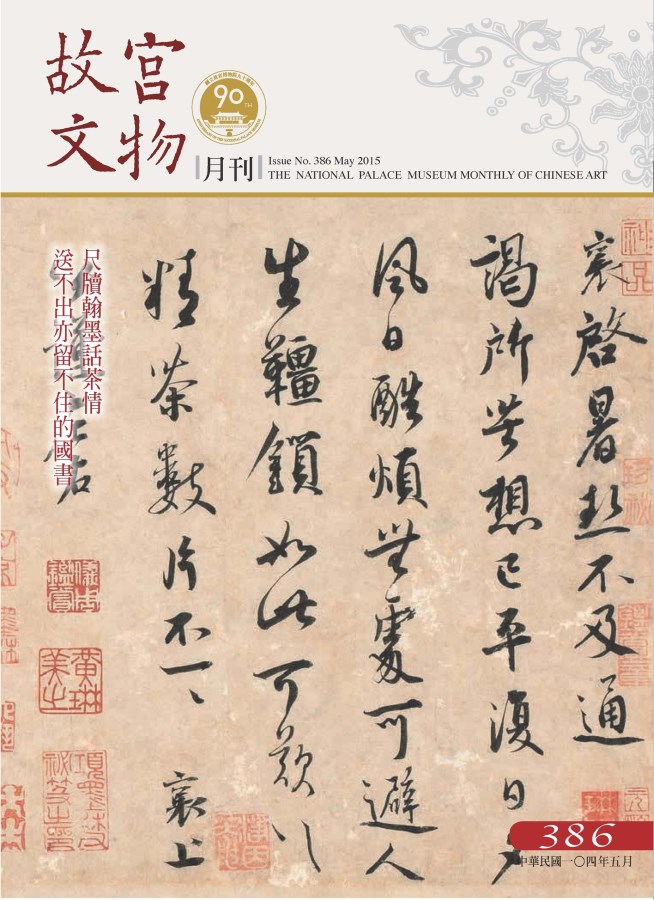 故宮
文物
90TH
月刊
Issue No. 386 May 2015
THE NATIONAL PALACE MUSEUM MONTHLY OF CHINESE ART
尺牘翰墨話茶情
送不出亦留不住的國書
襄啓暑熱不及通
謁所苦想已平復日夕
風日酷煩無處可避人
生韁鎖如此可歎〻
精茶數片不一〻 襄上
黃琳美之
386
中華民國一〇四年五月